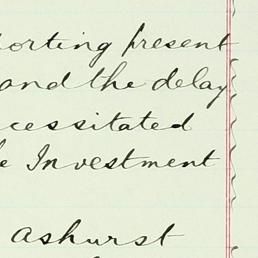 porting present
and the delay
cessitated
e Investment
Ashurst